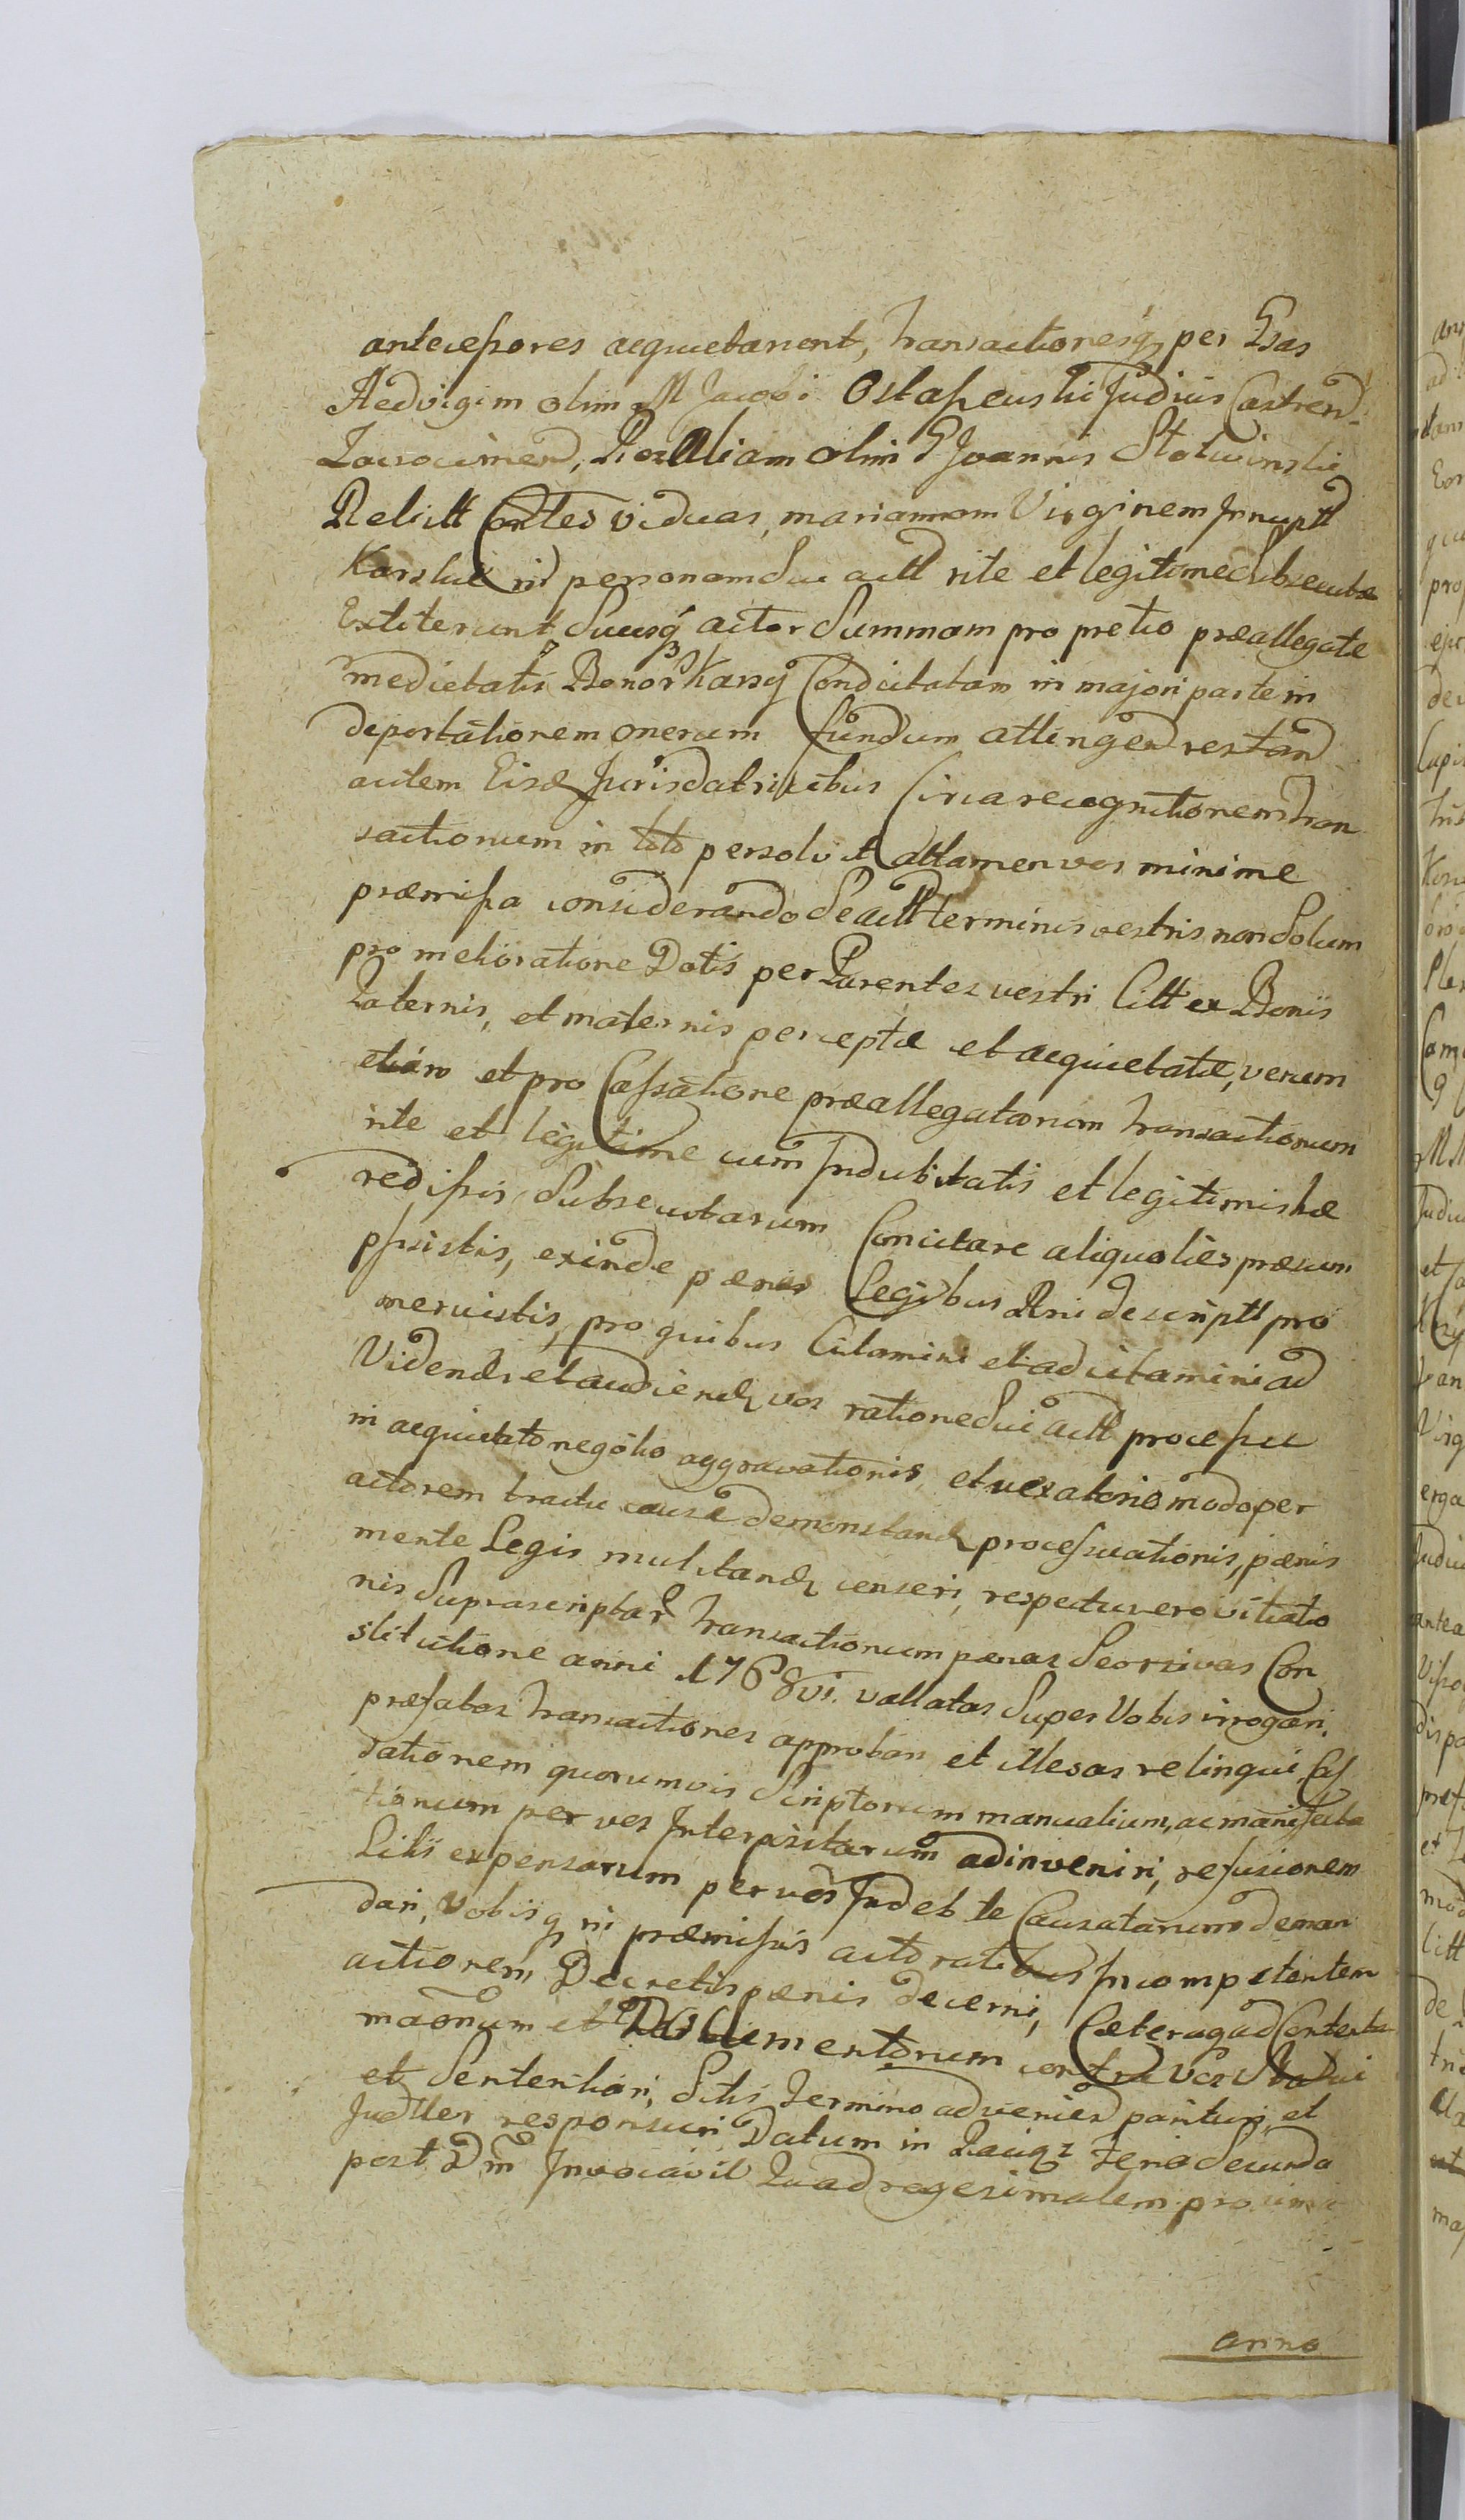 antecessores acquietarent, transactionesq per Gsas
Hedvigim olim M Jacobi Ostaszewski Judicis Castren
Zacrocimen, Rosaliam olim G Joannis Stoluinski
Relictt Contes viduas, mariannam Virginem Innuptt
Karskie in personam sui actt rite et legitime subsecutæ
Extiterunt, Suusq actor Summam pro pretio præallegate
medietatis Bonor Karsy Condictatam in majori parte in
deportationem onerum fundum attingen restan
autem Eisd Jurisdatricibus Circa recognitionem tran
sactionum in toto persolvit attamen vos minime
præmissa considerando de actt terminis vestris non Solum
pro melioratione Dotis per Parentes vestri Citt ex Bonis
Paternis, et maternis perceptæ et acquietatæ, verum
etiam et pro Cassatione præallegatarum transactionum
rite et legitime cum Indubitatis et legitimis hæ
redissis Subsecutarum Concitare aliquoties præsum
psistis, exinde pænas Legibus Rni descriptt pro
meruistis, pro quibus Citamini et adcitamini ad
Videnđ et audienđ vos ratione sui actt processu
in acquietato negotio aggravationis et vexatorio modo per
actorem tractu causæ demonstranđ processuationis, pænis
mente Legis mulctanđ censeri, respectu vero vitiatio
nis Suprascriptar transactionum pænas Seorsivas Con
stitutione anni 1768vi. vallatas Super Vobis irrogari.
præfatas transactiones approbari et illesas relinqui Cas
sationem quorumvis Scriptorum manualium, ac manifesta
tionum per vos Interpositarum adinveniri, refusionem
Litis expensarum per vos Indebite Causatarum deman
dari, Vobisq in præmissis actoratibus Incompetentem
actionem Decretis pænis decerni, Cæteraq ad Contenta
maonum et Documentorum contra vos Statui
et Sententiari, Sitis termino advenien parituri, et
Judller responsuri, Datum in Raciąz Feria Secunda
post Dm Invocavit Quadragesimalem proxima
anno